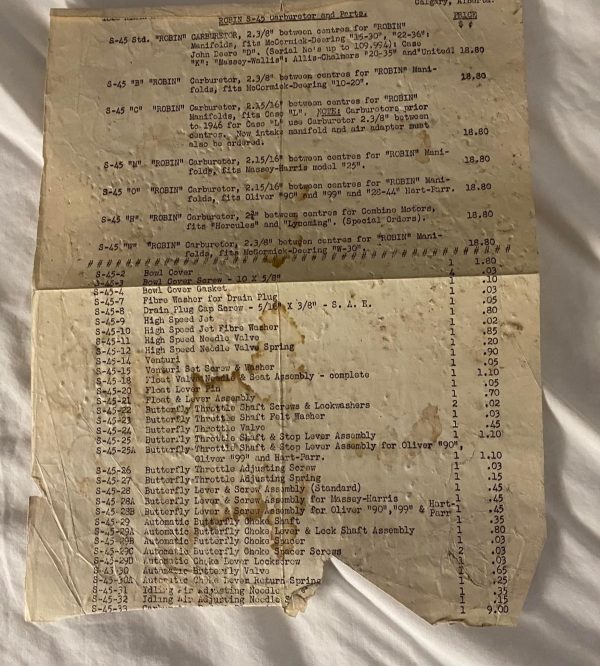 Calgary, Alberta.
ROBIN S-45 Carburetor and Parts.
PRICE
S-45 Std. "ROBIN" CARBURETOR, 2.3/8" between centres for "ROBIN"
Manifolds, fits McCormick-Deering "15-30", "22-36":
John Deere "D". (Serial No's up to 109,994): Case
"K": "Massey-Wallis": Allis-Chalmers "20-35" and "United: 18.80
S-45 "B" "ROBIN" Carburetor, 2.3/8" between centres for "ROBIN" Mani-
folds, fits McCormick-Deering "10-20". 18.80
S-45 "C" "ROBIN" Carburetor, 2.15/16" between centres for "ROBIN"
Manifolds, fits Case "L". NOTE: Carburetors prior
to 1946 for Case "L" use Carburetor 2.3/8" between
centres. New intake manifold and air adapter must
also be ordered. 18.80
S-45 "M" "ROBIN" Carburetor, 2.15/16" between centres for "ROBIN" Mani-
folds, fits Massey-Harris model "25". 18.80
S-45 "O" "ROBIN" Carburetor, 2.15/16" between centres for "ROBIN" Mani-
folds, fits Oliver "90" and "99" and "28-44" Hart-Parr. 18.80
S-45 "H" "ROBIN" Carburetor, between centres for Combine Motors,
fits "Hercules" and "Lycoming". (Special Orders). 18.80
S-45 "W" "ROBIN" Carburetor, 2.3/8" between centres for "ROBIN" Mani-
folds, fits McCormick-Deering "W-30". 18.80
S-45-2 Bowl Cover 1 1.80
S-45-3 Bowl Cover Screw - 10 X 5/8" 4 .03
S-45-4 Bowl Cover Gasket 1 .10
S-45-7 Fibre Washer for Drain Plug 1 .03
S-45-8 Drain Plug Cap Screw - 5/16" X 3/8" - S. A. E. 1 .05
S-45-9 High Speed Jet 1 .80
S-45-10 High Speed Jet Fibre Washer 1 .02
S-45-11 High Speed Needle Valve 1 .85
S-45-12 High Speed Needle Valve Spring 1 .20
S-45-14 Venturi 1 .90
S-45-15 Venturi Set Screw & Washer 1 .05
S-45-18 Float Valve Needle & Seat Assembly - complete 1 1.10
S-45-20 Float Lever Pin 1 .05
S-45-21 Float & Lever Assembly 1 .70
S-45-22 Butterfly Throttle Shaft Screws & Lockwashers 2 .02
S-45-23 Butterfly Throttle Shaft Felt Washer 1 .03
S-45-24 Butterfly Throttle Valve 1 .45
S-45-25 Butterfly Throttle Shaft & Stop Lever Assembly 1 1.10
S-45-25A Butterfly Throttle Shaft & Stop Lever Assembly for Oliver "90",
Oliver "99" and Hart-Parr. 1 1.10
S-45-26 Butterfly Throttle Adjusting Screw 1 .03
S-45-27 Butterfly Throttle Adjusting Spring 1 .15
S-45-28 Butterfly Lever & Screw Assembly (Standard) 1 .45
S-45-28A Butterfly Lever & Screw Assembly for Massey-Harris 1 .45
S-45-28B Butterfly Lever & Screw Assembly for Oliver "90","99" & Hart-Parr 1 .45
S-45-29 Automatic Butterfly Choke Shaft 1 .35
S-45-29A Automatic Butterfly Choke Lever & Lock Shaft Assembly 1 .80
S-45-29B Automatic Butterfly Choke Spacer 1 .03
S-45-29C Automatic Butterfly Choke Spacer Screws 2 .03
S-45-29D Automatic Choke Lever Lockscrew 1 .03
Automatic Butterfly Valve .65
S-45-30A Automatic Choke Lever Return Spring 1 .25
S-45-31 Idling Air Adjusting Needle 1 .35
S-45-32 Idling Air Adjusting Needle S 1 .15
S-45-33 1 9.00